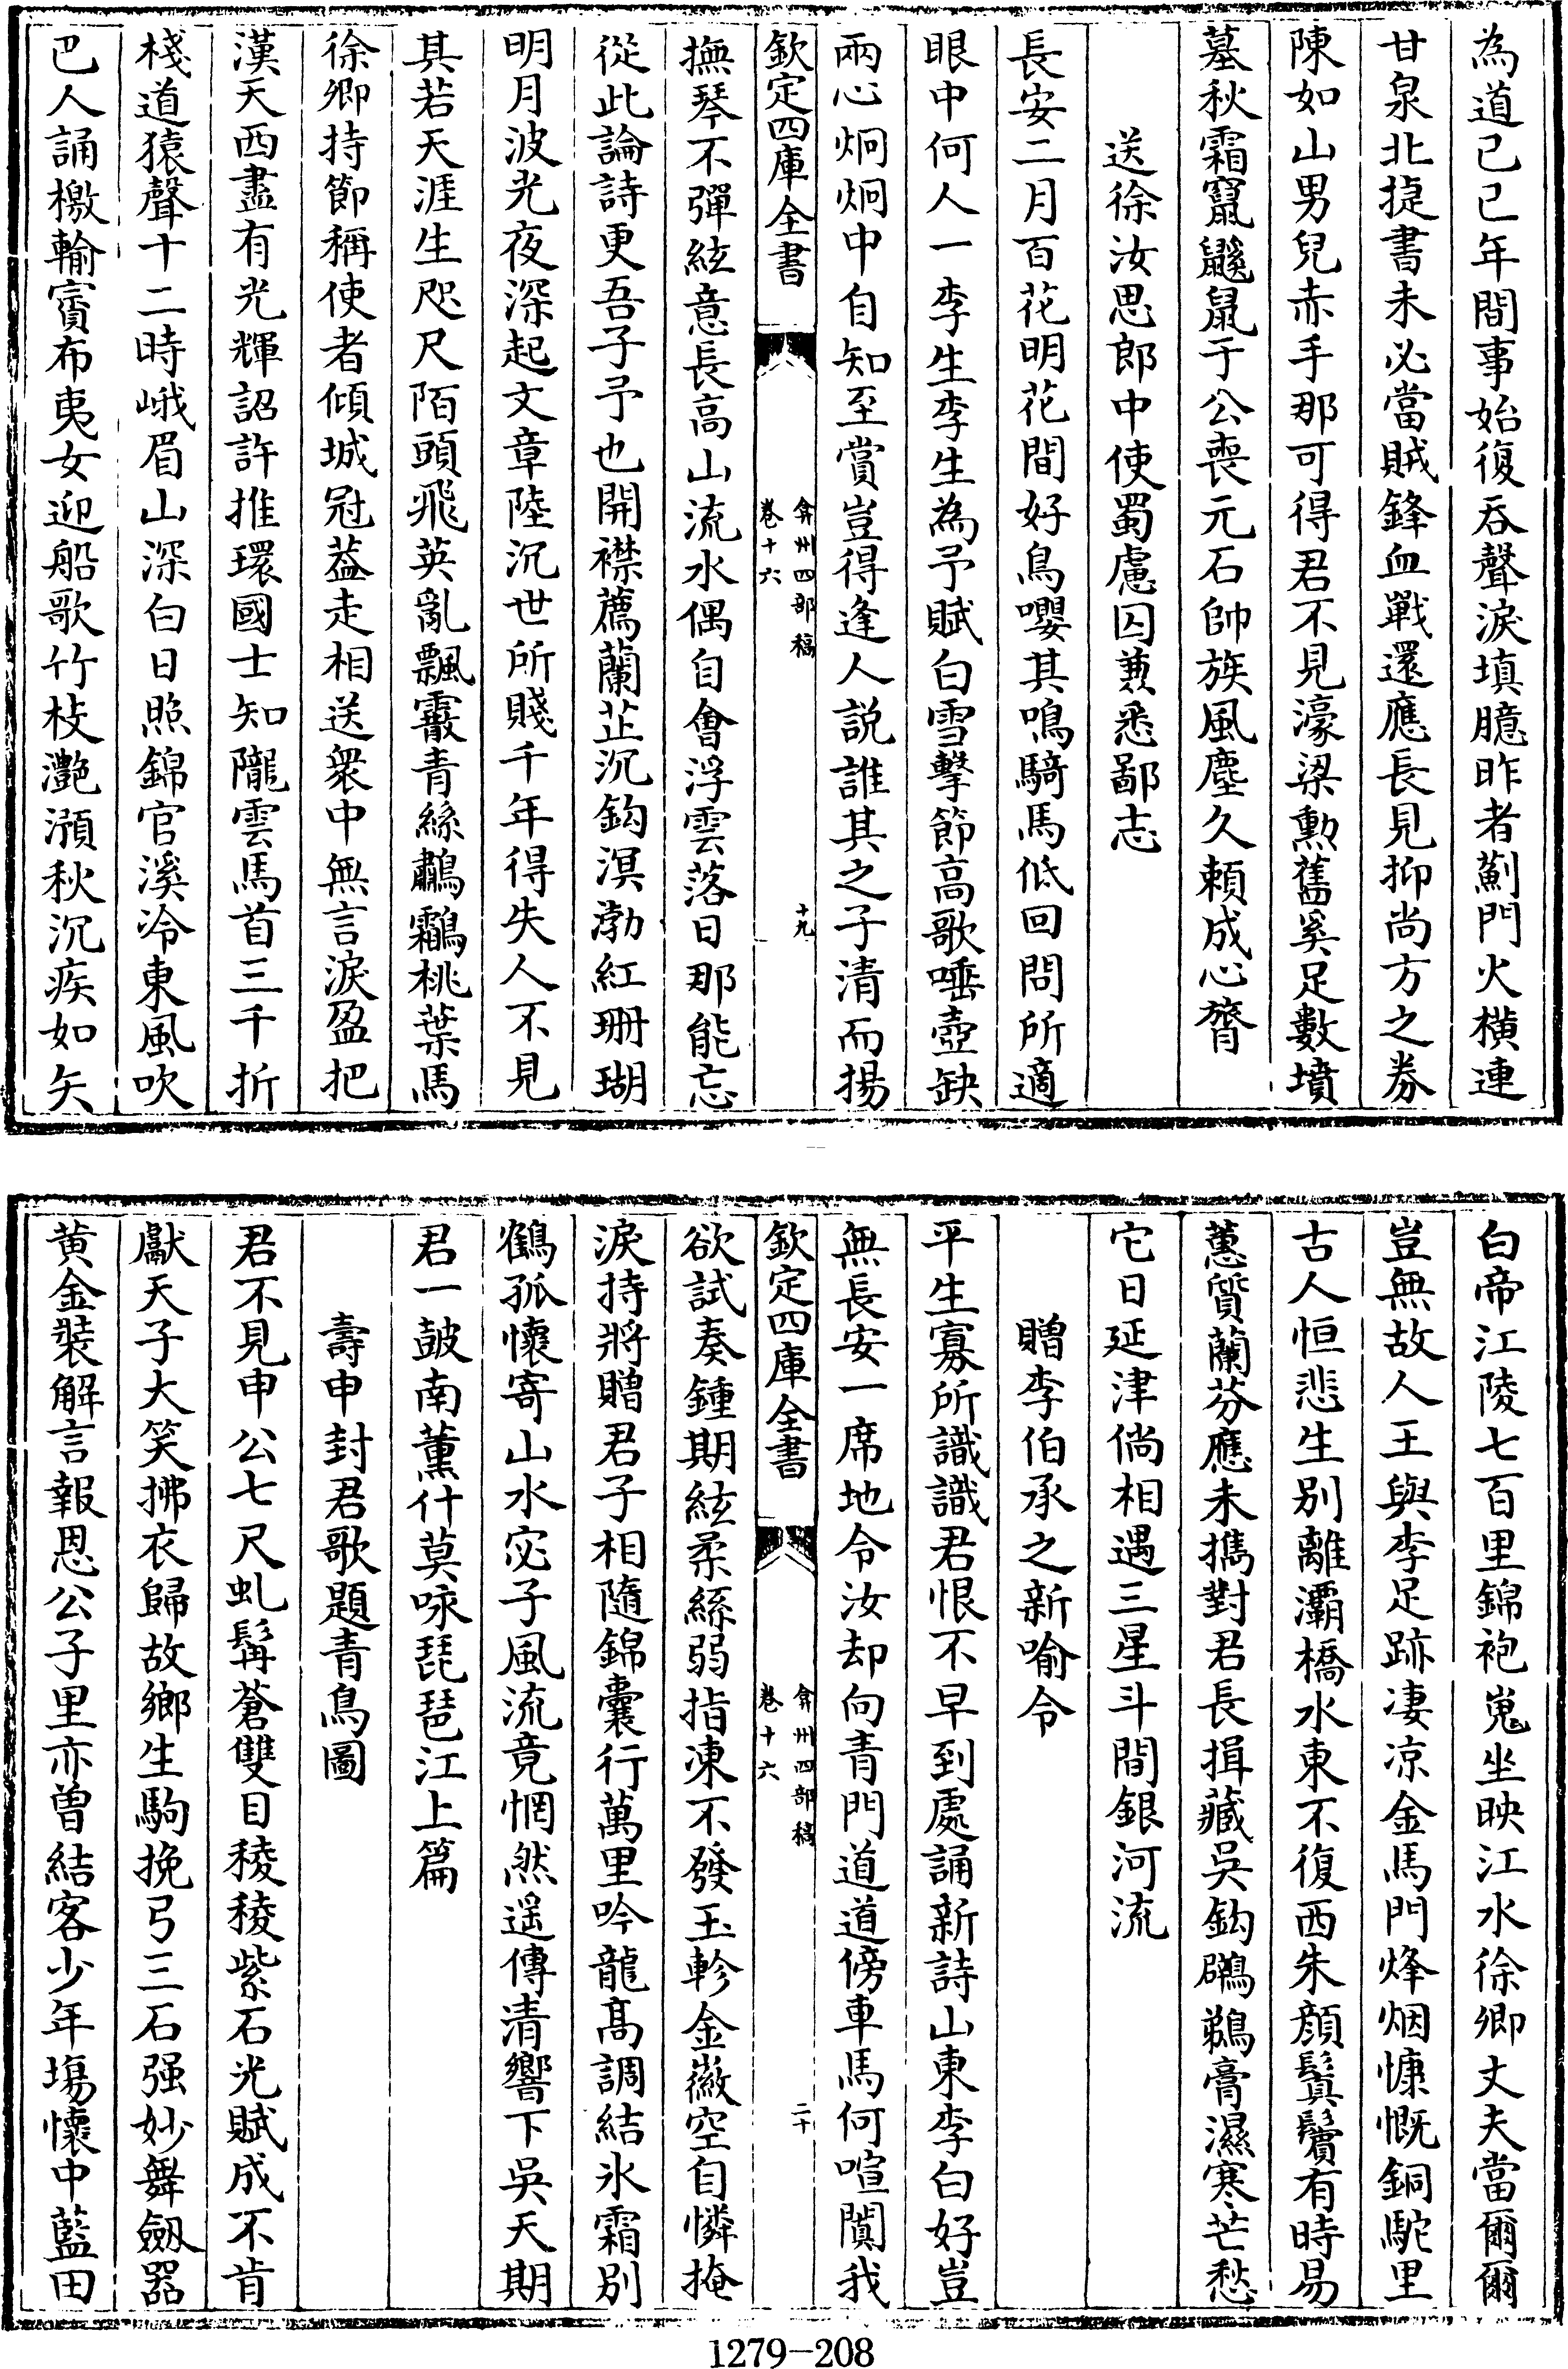 為道己巳年間事始復吞聲淚填臆昨者薊門火橫連
甘泉北捷書未必當賊鋒血戰還應長見抑尚方之券
陳如山男兒赤手那可得君不見濠梁勲舊奚足數墳
墓秋霜竄鼷鼠于公喪元石帥族風塵久賴成心膂
送徐汝思郎中使蜀慮囚兼悉鄙志
長安二月百花明花間好鳥嚶其鳴騎馬低回問所適
眼中何人一李生李生為予賦白雪擊節高歌唾壺缺
兩心炯炯中自知至賞豈得逢人説誰其之子清而揚
欽定四庫全書
弇州四部稿
卷十六
十九
撫琴不彈絃意長高山流水偶自會浮雲落日那能忘
從此論詩更吾子予也開襟薦蘭芷沉鈎溟渤紅珊瑚
明月波光夜深起文章陸沉世所賤千年得失人不見
其若天涯生咫尺陌頭飛英亂飄霰青絲鸕鷀桃葉馬
徐卿持節稱使者傾城冠葢走相送衆中無言淚盈把
漢天西盡有光輝詔許推環國士知隴雲馬首三千折
棧道猿聲十二時峨眉山深白日照錦官溪冷東風吹
巴人誦檄輸賨布夷女迎船歌竹枝灔澦秋沉疾如矢
白帝江陵七百里錦袍嵬坐映江水徐卿丈夫當爾爾
豈無故人王與李足跡凄凉金馬門烽烟慷慨銅駝里
古人恒悲生别離灞橋水東不復西朱顔鬒鬢有時易
蕙質蘭芬應未攜對君長揖藏吳鈎鸊鵜膏濕寒芒愁
它日延津倘相遇三星斗間銀河流
贈李伯承之新喻令
平生寡所識識君恨不早到處誦新詩山東李白好豈
無長安一席地令汝却向青門道道傍車馬何喧闐我
欽定四庫全書
弇州四部稿
卷十六
二十
欲試奏鍾期絃柔絲弱指凍不發玉軫金徽空自憐掩
淚持將贈君子相隨錦囊行萬里吟龍髙調結氷霜别
鶴孤懷寄山水宓子風流竟惘然遥傳清響下吳天期
君一皷南薰什莫咏琵琶江上篇
壽申封君歌題青鳥圖
君不見申公七尺虬髯蒼雙目稜稜紫石光賦成不肯
獻天子大笑拂衣歸故鄉生駒挽弓三石强妙舞劔器
黄金裝解言報恩公子里亦曾結客少年塲懷中藍田
1279-208